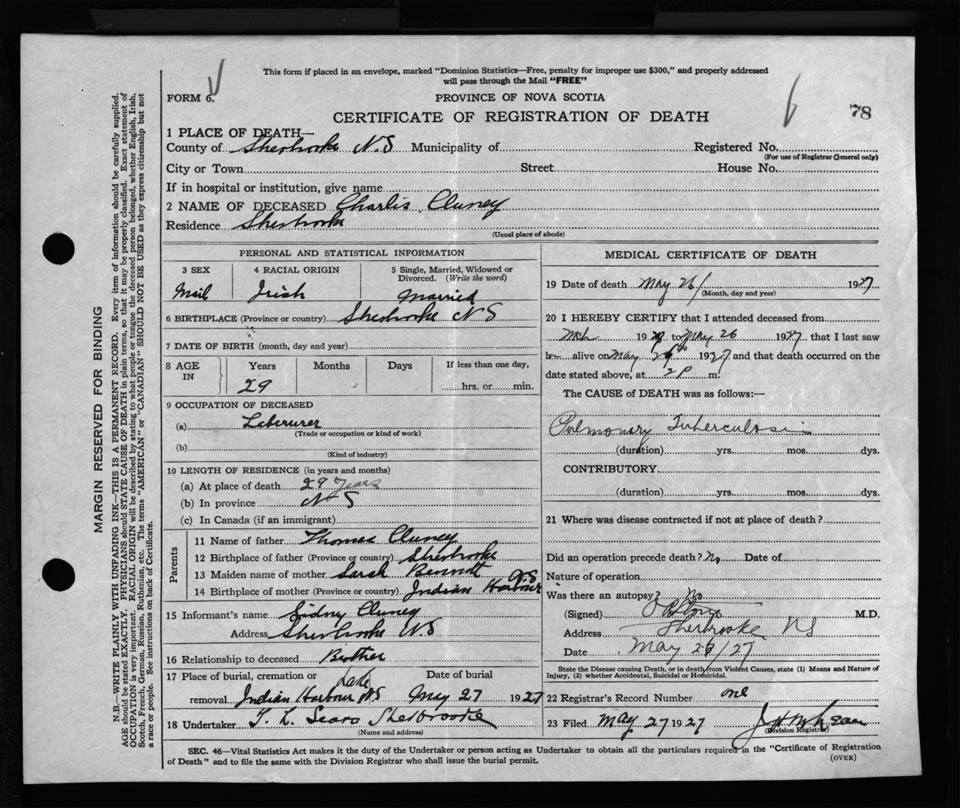 This form if placed in an envelope, marked "Dominion Statistics—Free, penalty for improper use $300," and properly addressed
will pass through the Mail "FREE"
FORM 6.
PROVINCE OF NOVA SCOTIA
78
CERTIFICATE OF REGISTRATION OF DEATH
1 PLACE OF DEATH—
County of Sherbrooke N.S Municipality of Registered No.
(For use of Registrar General only)
City or Town Street House No.
If in hospital or institution, give name
2 NAME OF DECEASED Charlis Cluney
Residence Sherbrooke
(Usual place of abode)
PERSONAL AND STATISTICAL INFORMATION
3 SEX 4 RACIAL ORIGIN 5 Single, Married, Widowed or Divorced. (Write the word)
Mail Irish Married
6 BIRTHPLACE (Province or country) Sherbrooke N S
7 DATE OF BIRTH (month, day and year)
8 AGE IN Years Months Days If less than one day,
29 hrs. or min.
9 OCCUPATION OF DECEASED
(a) Leberurer
(Trade or occupation or kind of work)
(b)
(Kind of industry)
10 LENGTH OF RESIDENCE (in years and months)
(a) At place of death 29 Years
(b) In province N S
(c) In Canada (if an immigrant)
Parents
11 Name of father Thomas Cluney
12 Birthplace of father (Province or country) Sherbrooke
13 Maiden name of mother Sarah
14 Birthplace of mother (Province or country) Indian Harbour N.S
15 Informant's name Sidney Cluney
Address Sherbrooke N.S
16 Relationship to deceased Brother
17 Place of burial, cremation or Date of burial
removal Indian Harbour Lake N.S May 27 1927
18 Undertaker T. L. Sears Sherbrooke
(Name and address)
MEDICAL CERTIFICATE OF DEATH
19 Date of death May 26/ 1927
(Month, day and year)
20 I HEREBY CERTIFY that I attended deceased from
Mch 19 to May 26 1927 that I last saw
alive on May 26th 1927 and that death occurred on the
date stated above, at 2 P m.
The CAUSE OF DEATH was as follows:—
Pulmonary Tuberculosis
(duration) yrs. mos. dys.
CONTRIBUTORY
(duration) yrs. mos. dys.
21 Where was disease contracted if not at place of death?
Did an operation precede death? No Date of
Nature of operation
Was there an autopsy? No
(Signed) M.D.
Address Sherbrooke NS
Date May 26/27
State the Disease causing Death, or in death from Violent Causes, state (1) Means and Nature of
Injury, (2) whether Accidental, Suicidal or Homicidal.
22 Registrar's Record Number one
23 Filed May 27 1927
(Division Registrar)
SEC. 46—Vital Statistics Act makes it the duty of the Undertaker or person acting as Undertaker to obtain all the particulars required in the "Certificate of Registration
of Death" and to file the same with the Division Registrar who shall issue the burial permit.
(OVER)
MARGIN RESERVED FOR BINDING
N.B.—WRITE PLAINLY WITH UNFADING INK—THIS IS A PERMANENT RECORD. Every item of information should be carefully supplied.
AGE should be stated EXACTLY. PHYSICIANS should STATE CAUSE OF DEATH in plain terms, so that it may be properly classified. Exact statement of
OCCUPATION is very important. RACIAL ORIGIN will be described by stating to what people or tongue the deceased person belonged, whether English, Irish,
Scotch, French, German, Russian, Ruthenian, etc. The terms "AMERICAN" or "CANADIAN" SHOULD NOT BE USED as they express citizenship but not
a race or people. See instructions on back of Certificate.